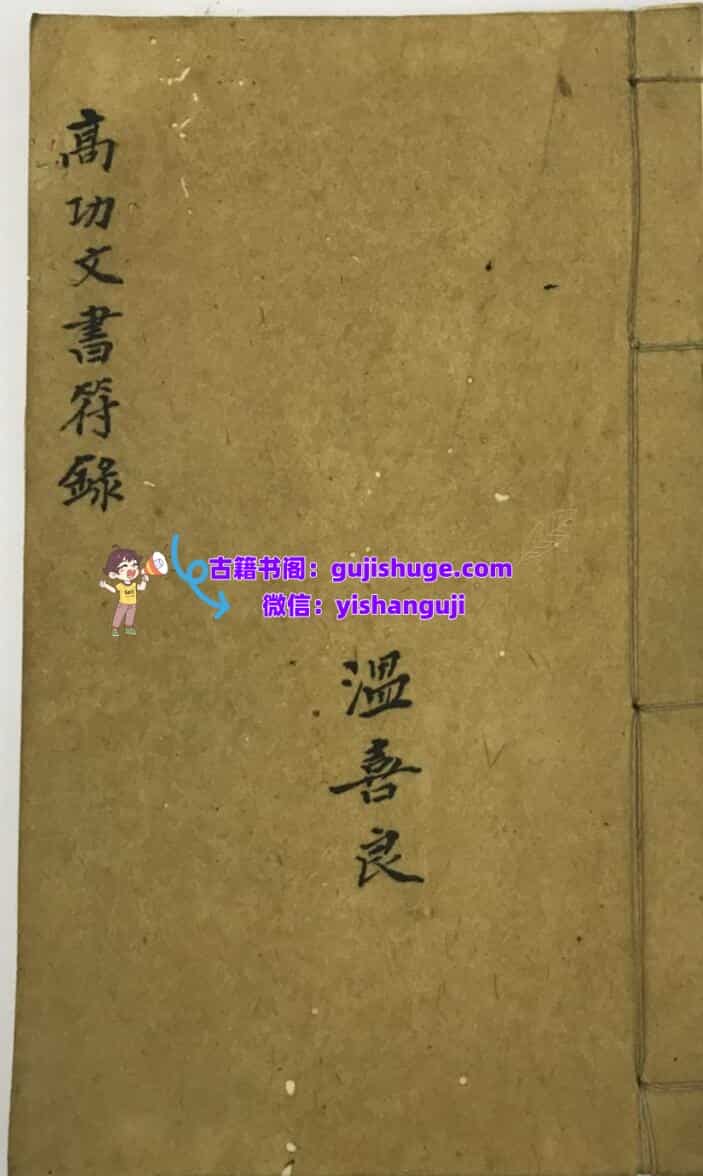 高功文書符錄
古籍书阁：gujishuge.com
微信：yishanguji
温善良